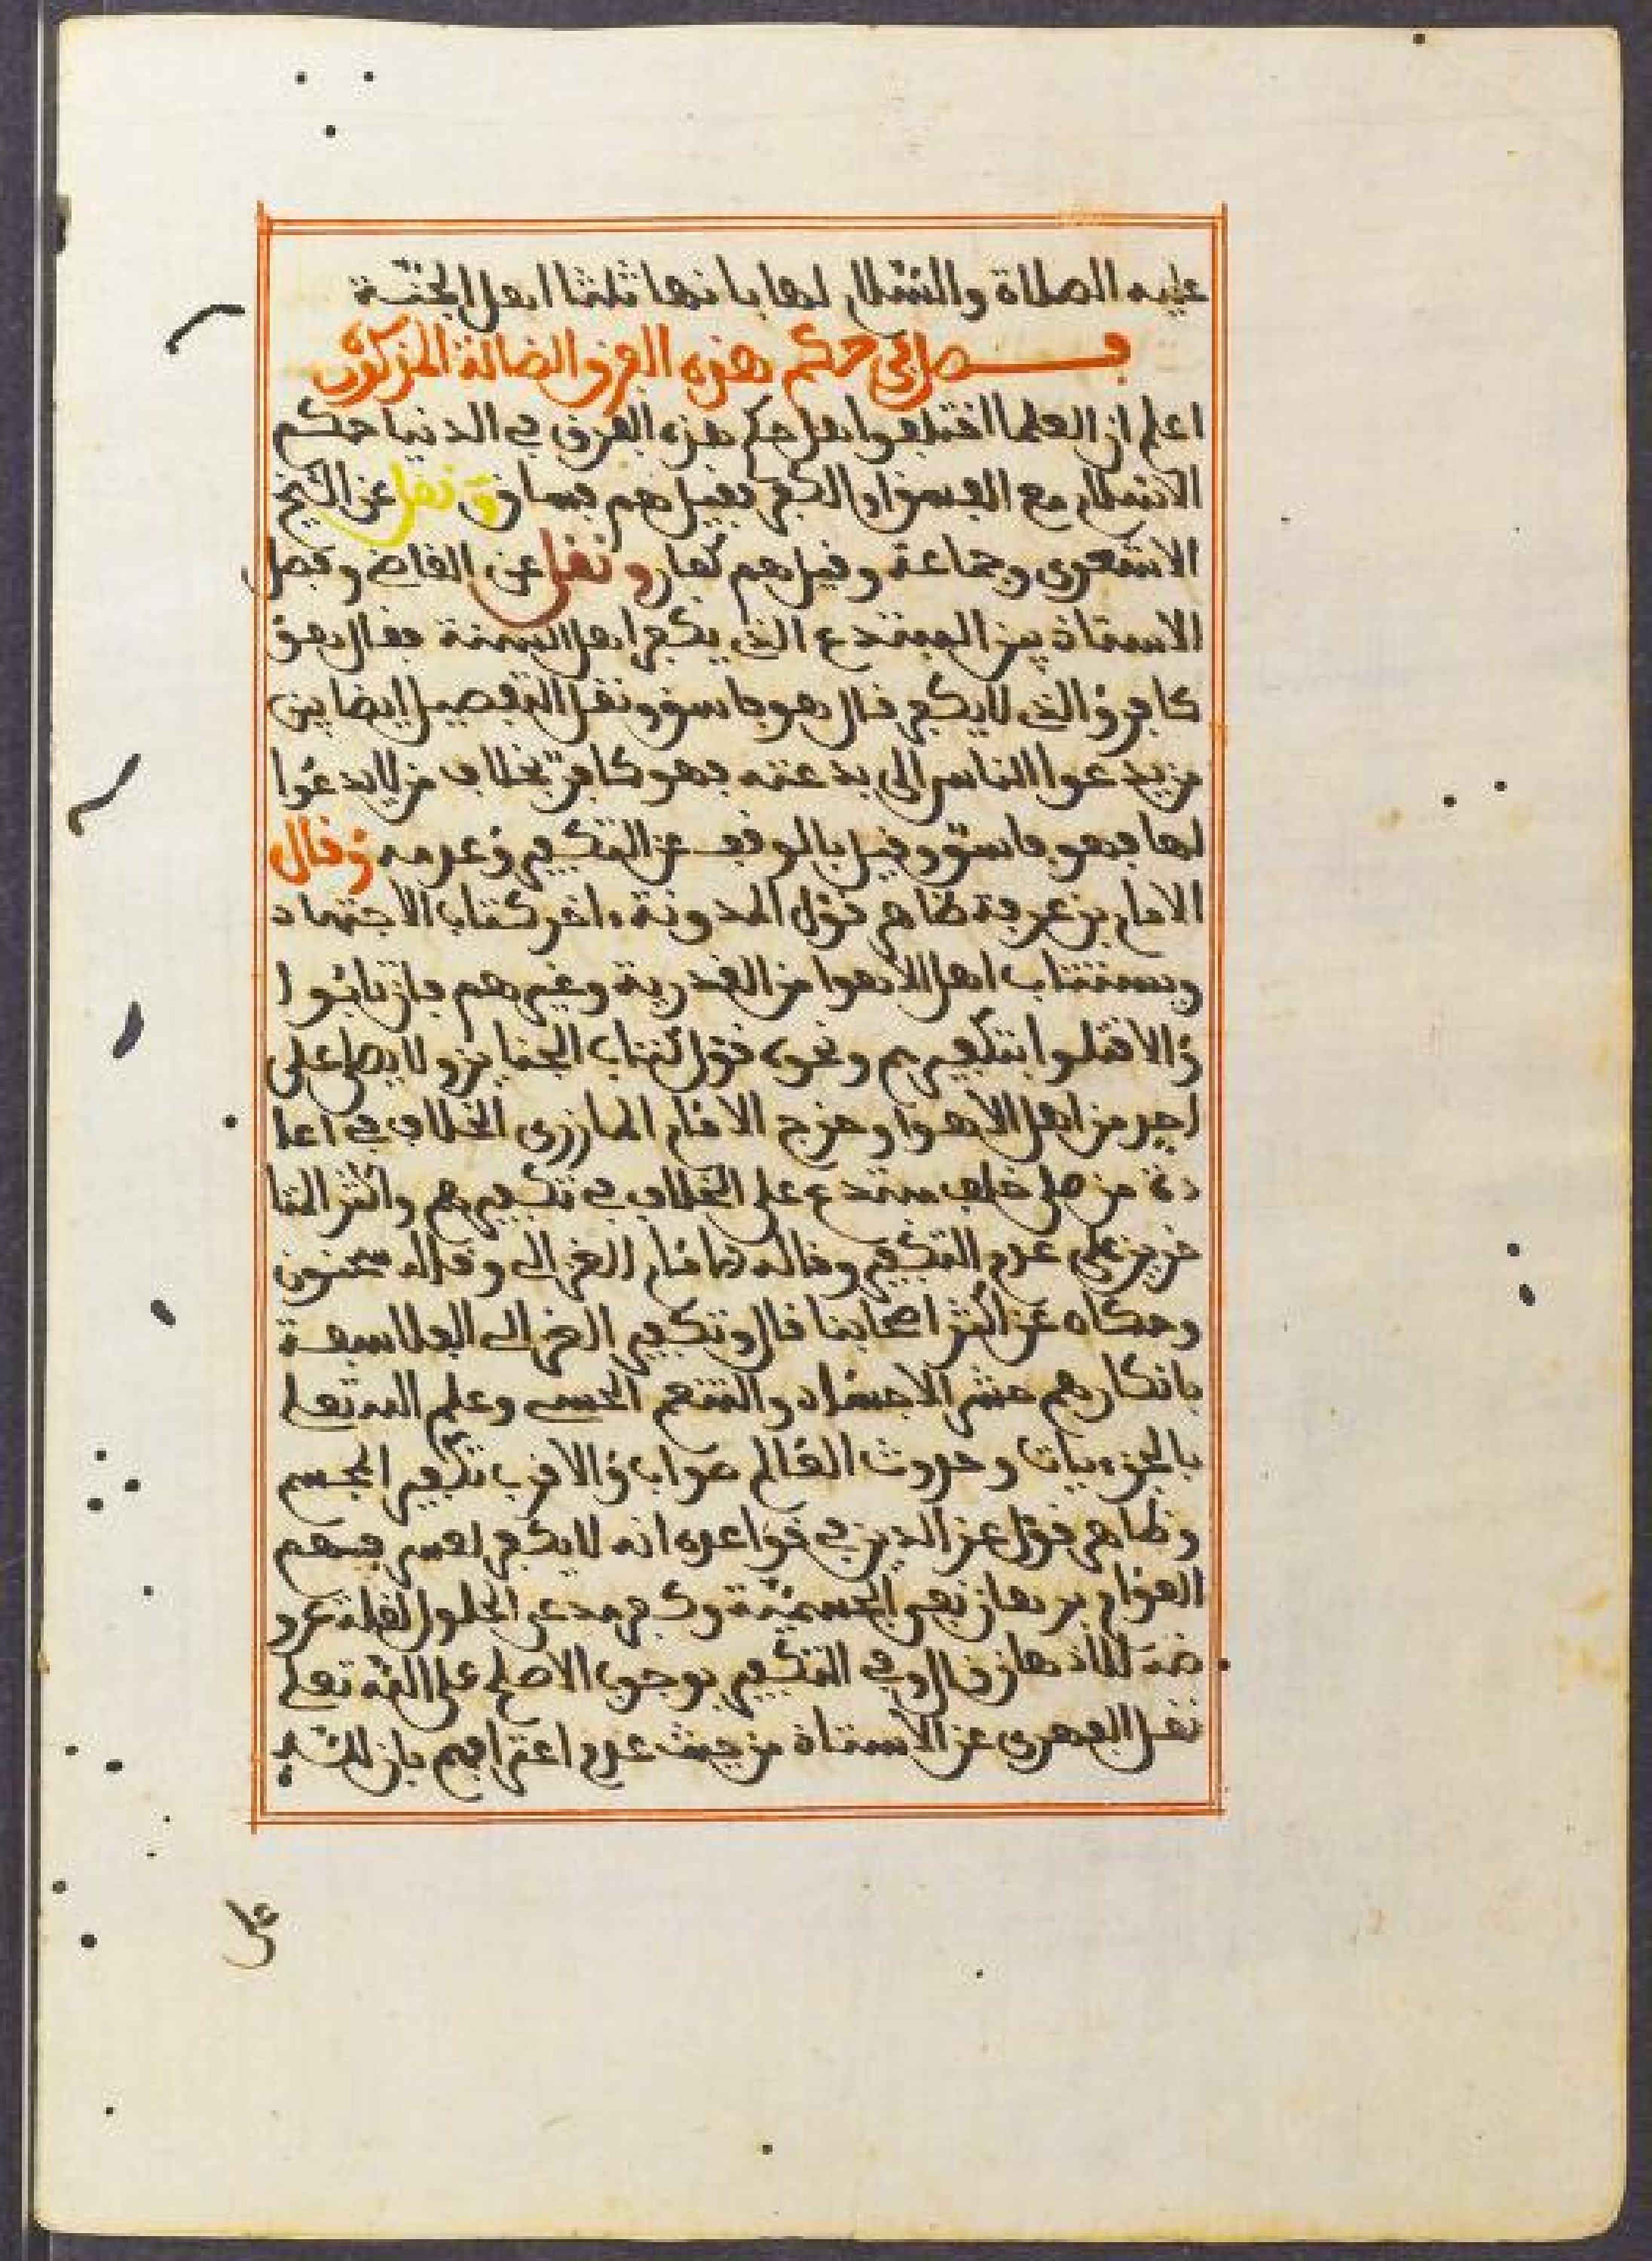 عليه الصلاة والسلام لها بانها ثلثا اهل الجنة
فصل في حكم هذه الفرق الضالة المذكورة
اعلم ان العلما اختلفوا هل حكم هذه الفرق في الدنيا حكم
الاسلام مع الفسق او الكفر فقيل هم فساق ونقل عن الشيخ
الاشعري وجماعة وقيل هم كفار ونقل عن القاضي وفصل
الاستاذ بين المبتدع الذي يكفر اهل السنة فقال هو
كافر والذي لا يكفر قال هو فاسق ونقل التفصيل ايضا بين
من يدعوا الناس الى بدعته فهو كافر بخلاف من لا يدعوا
لها فهو فاسق وقيل بالوقف عن التكفير وعدمه وقال
الامام بن عرفة ظاهر قول المدونة اخر كتاب الاجتهاد
ويستتاب اهل الاهوا من القدرية وغيرهم فان تابوا
والا قتلوا بتكفيرهم ونحوه قول كتاب الجنايز ولا يصلى على
احد من اهل الاهوا وخرج الامام المازري الخلاف في اعا
دة من صلى خلف مبتدع على الخلاف في تكفيرهم واكثر المتا
خرين على عدم التكفير وقاله الامام الغزالي وقاله سحنون
وحكاه عن اكثر اصحابنا قال وتكفير الغزالي الفلاسفة
بانكارهم حشر الاجساد والتنعم الحسي وعلم الله تعلى
بالجزءيات وحدوث العالم صواب والاقرب تكفير المجسم
وظاهر قول عز الدين في قواعده انه لا يكفر لعسر فهم
العوام برهان نفي الجسمية وكفر مدعي الحلول لقلة عرو
ضه للاذهان قال وفي التكفير بوجوب الاصلح على الله تعلى
نقل الفهري عن الاستاذ من حيث عدم اعترافهم بان لله